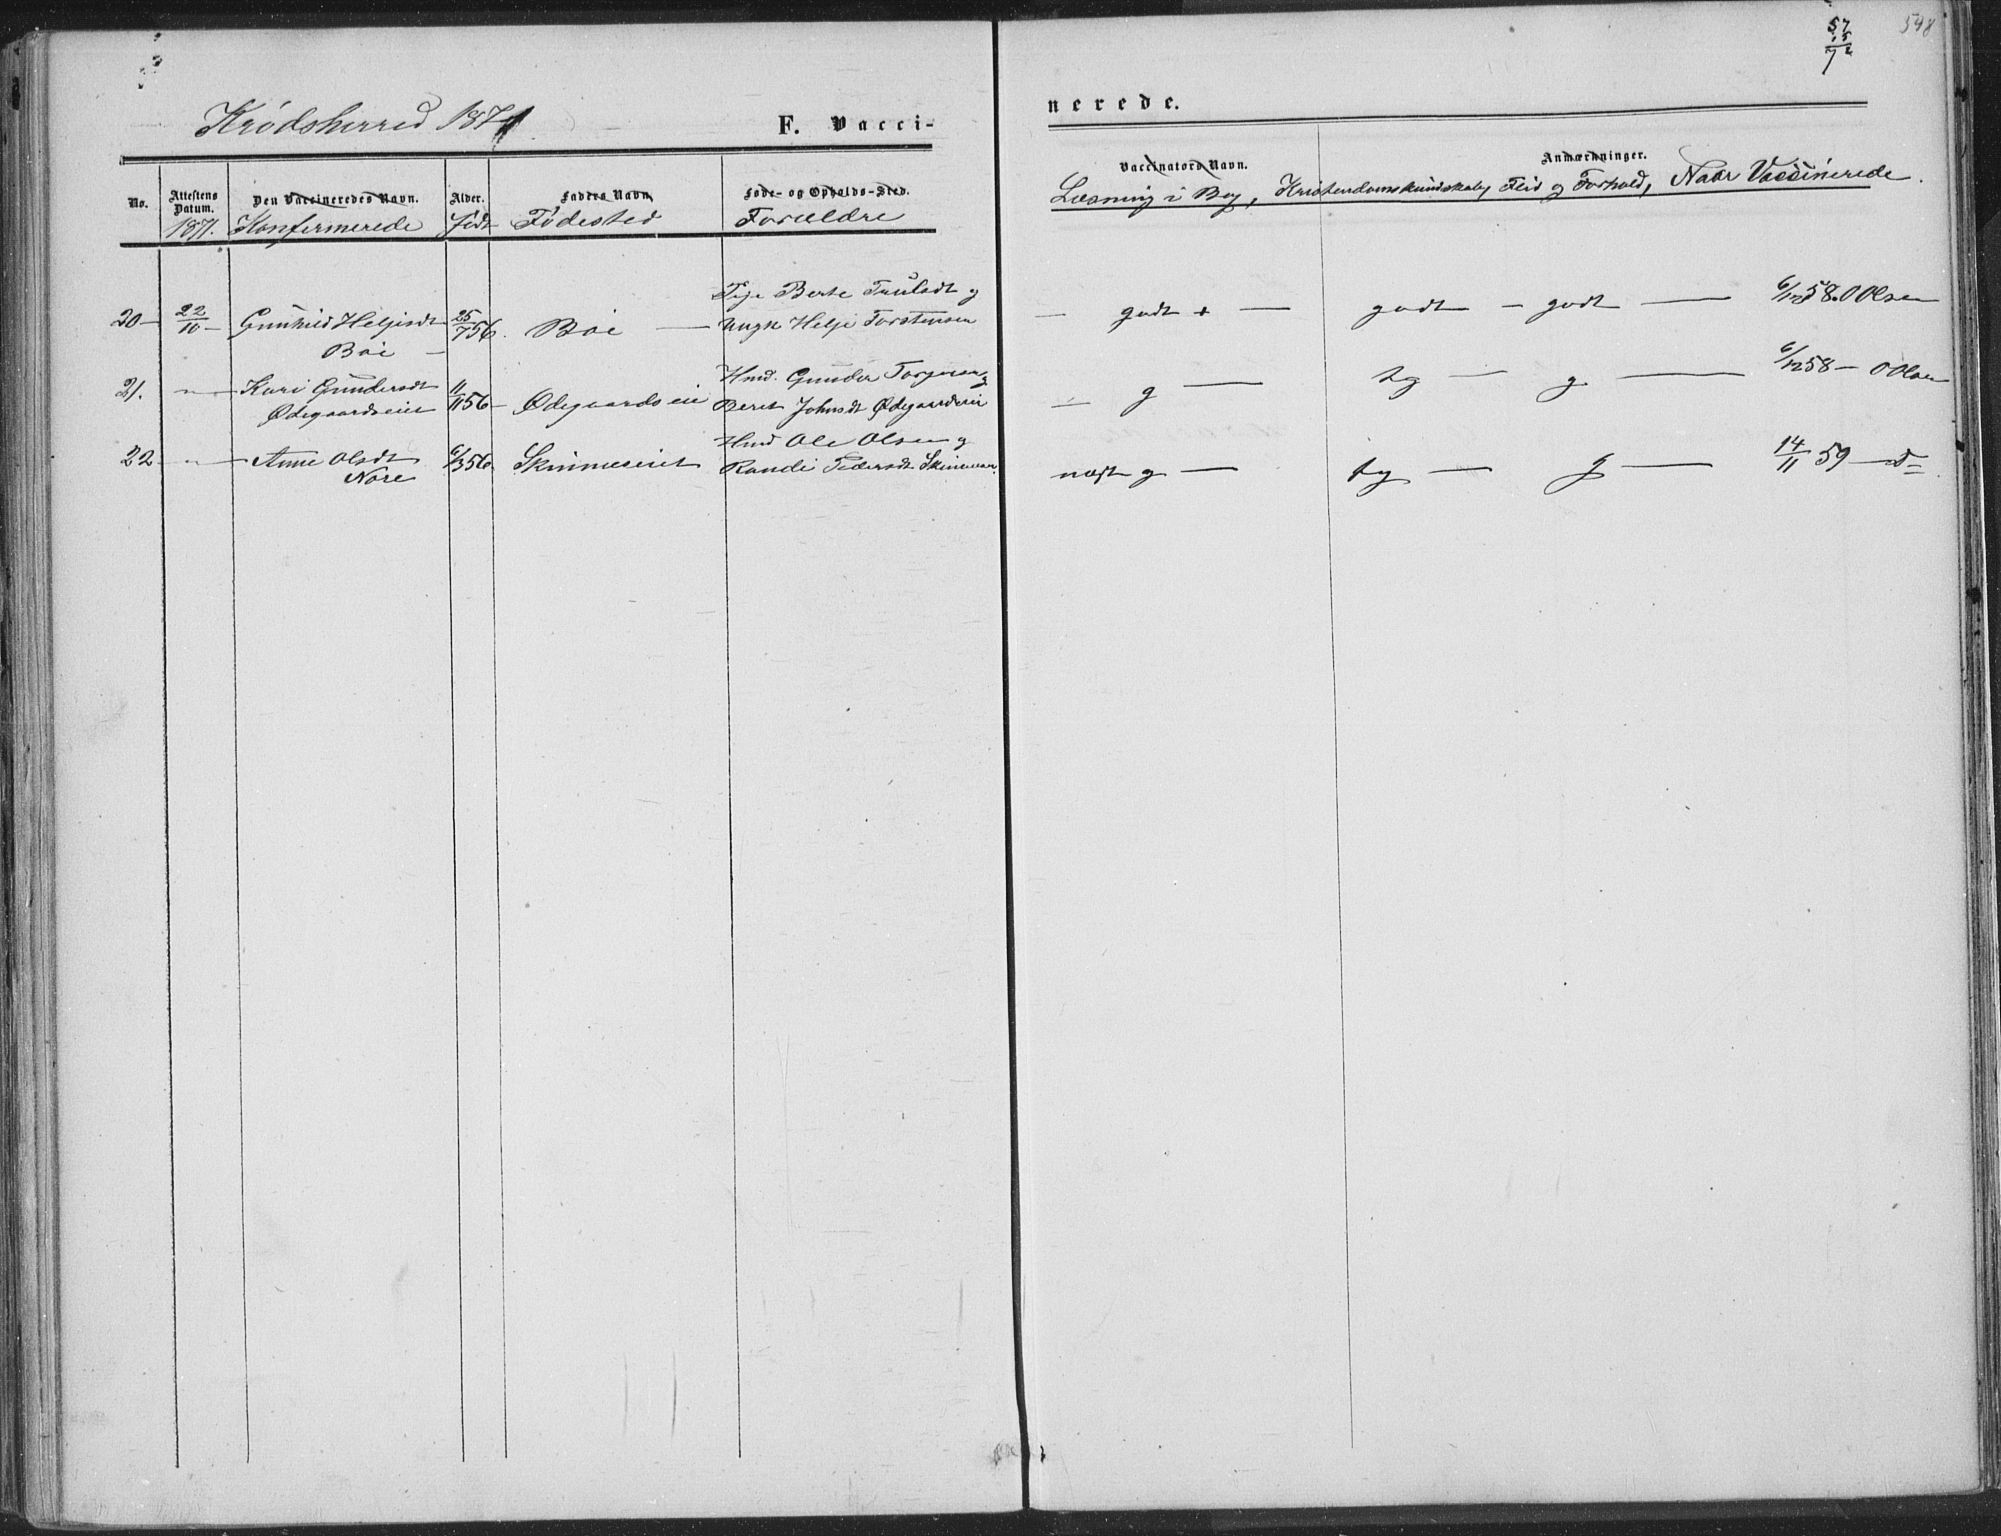 548
57
15
72
Krødsherred 1871
F. Vacci-
nerede.
No.
Attestens Datum.
1871.
Den Vaccineredes Navn.
Konfirmerede
Alder.
Født
Faders Navn
Fødested
Føde- og Opholds-Sted.
Forældre
Vaccinators Navn.
Anmærkninger.
Læsning i Bog, Kristendomskundskab, Flid og Forhold, Naar Vaccinerede.
Pige Berte Trulsdt og
20 — 22/10 — Gunhild Helgesdt 25/7 56. Bøe — Ungk Helge Torstensen — godt + — godt — godt — 6/12 58. O Olsen
Bøe —
21. — " — Kari Gundersdt 11/11 56 — Ødegaardseie Hmd. Gunder Torgersen og — g — tg — g — 6/12 58 — O Olsen
Ødegaardseiet Beret Johnsdt Ødegaardseie
22 — " — Anne Olsdt 6/3 56. Skinneseiet Hmd Ole Olsen og
Nore Randi Pedersdt næst g — tg — g — 14/11 59 — d=